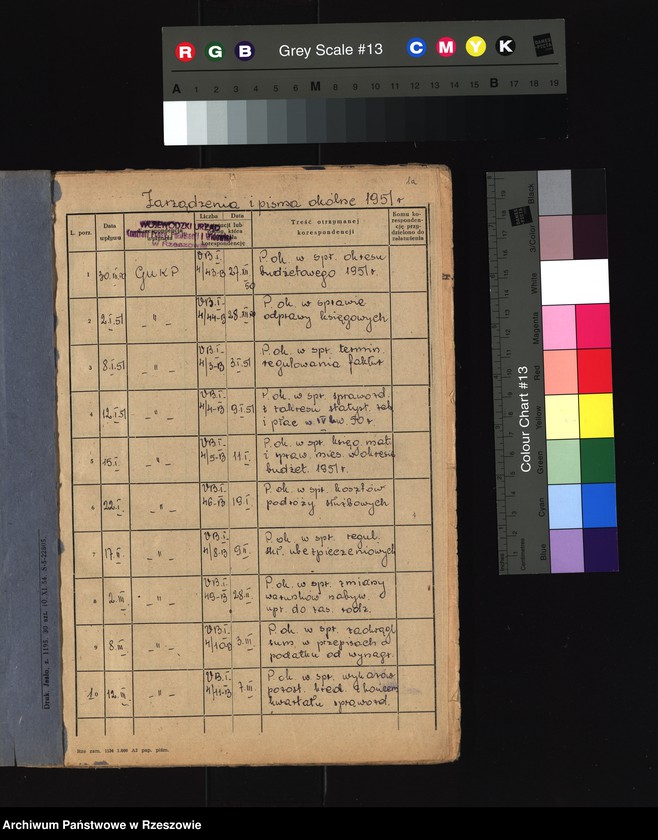 R G B Grey Scale #13 C M Y K
A 1 2 3 4 5 6 M 8 9 10 11 12 13 14 15 B 17 18 19
Zarządzenia i pisma okólne 1951 r
L. porz.
Data
wpływu
WOJEWÓDZKI URZĄD
Liczba
Data
korespondencję
Treść otrzymanej
korespondencji
Komu ko-
responden-
cję przy-
dzielono do
załatwienia
1 30.XII.50 GUKP VB.I. 4/43-B 27.XII 50 P. ok. w spr. okresu
budżetowego 1951 r.
2 2.I.51 - " - VB.I. 4/44-B 28.XII.50 P. ok. w sprawie
odprawy księgowych
3 8.I.51 - " - VB.I. 4/3-B 3.I.51 P. ok. w spr. termin.
regulowania faktur
4 12.I.51 - " - VB.I. 4/4-B 9.I.51 P. ok. w spr. sprawozd.
z zakresu statyst. zatr.
i płac w IV kw. 50 r.
5 15.I. - " - VB.I. 4/5-B 11.I. P. ok. w spr. księg. mat.
i spraw. mies. w okresie
budżet. 1951 r.
6 22.I. - " - VB.I. 4/6-B 19.I. P. ok. w spr. kosztów
podróży służbowych
7 17.II. - " - VB.I. 4/8-B 9.II. P. ok. w spr. regul.
skł. ubezpieczeniowych
8 2.III. - " - VB.I. 4/9-B 28.II. P. ok. w spr. zmiany
warunków nabyw.
upr. do zas. rodz.
9 8.III. - " - VB.I. 4/10-B 3.III. P. ok. w spr. zaokrągl.
sum w przepisach o
podatku od wynagr.
10 12.III. - " - VB.I. 4/11-B 7.III. P. ok. w spr. wykazów
pozost. kred. z końcem
kwartału sprawozd.
Druk. Jasło, z. 1198.
Colour Chart #13
Black
3/Color
White
Magenta
Red
Yellow
Green
Cyan
Blue
Centimetres
Archiwum Państwowe w Rzeszowie